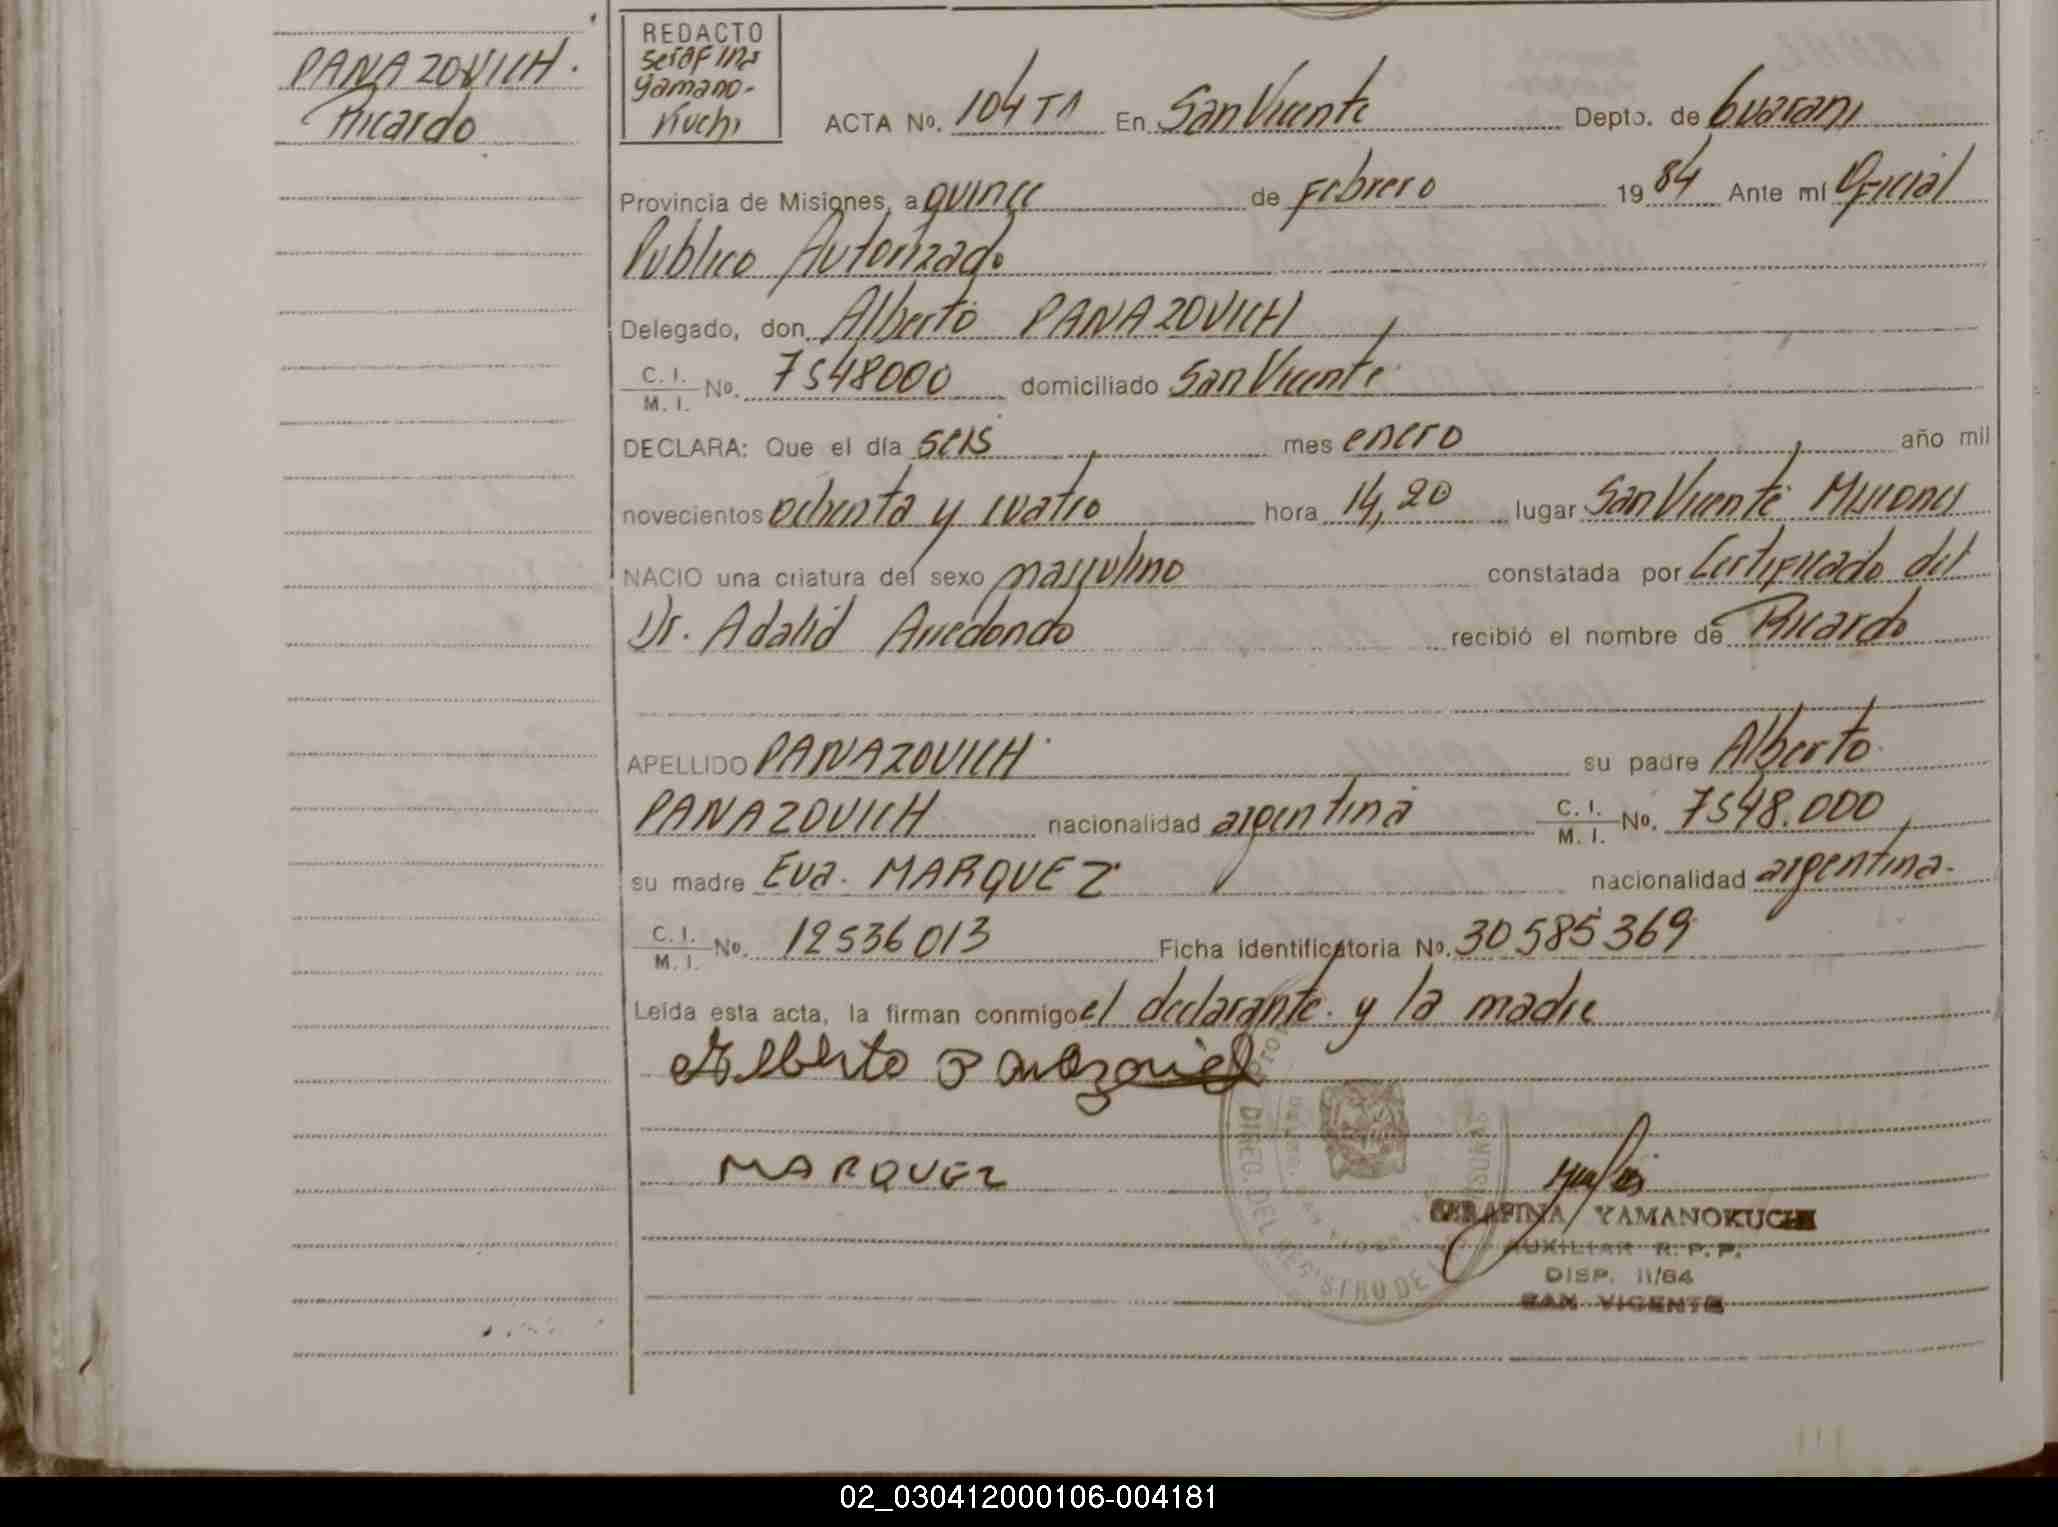 PANAZOVICH.
Ricardo
REDACTO
Serafina
Yamano-
Kuchi
ACTA No. 104 T1 En San Vicente Depto. de Guarani
Provincia de Misiones, a quince de Febrero 19 84 Ante mí Oficial
Publico Autorizado
Delegado, don Alberto PANAZOVICH
C. I. / M. I. No. 7548000 domiciliado San Vicente
DECLARA: Que el día seis mes enero año mil
novecientos ochenta y cuatro hora 14,20 lugar San Vicente Misiones
NACIO una criatura del sexo masculino constatada por Certificado del
Dr. Adalid Arredondo recibió el nombre de Ricardo
APELLIDO PANAZOVICH su padre Alberto
PANAZOVICH nacionalidad argentina C. I. / M. I. No. 7548.000
su madre Eva. MARQUEZ nacionalidad argentina.
C. I. / M. I. No. 12536013 Ficha identificatoria No. 30585369
Leída esta acta, la firman conmigo el declarante y la madre
Alberto Panazovich
MARQUEZ
DIREC. DEL REGISTRO DE
SERAFINA YAMANOKUCHI
AUXILIAR R. P. P.
DISP. 11/84
SAN VICENTE
02_030412000106-004181